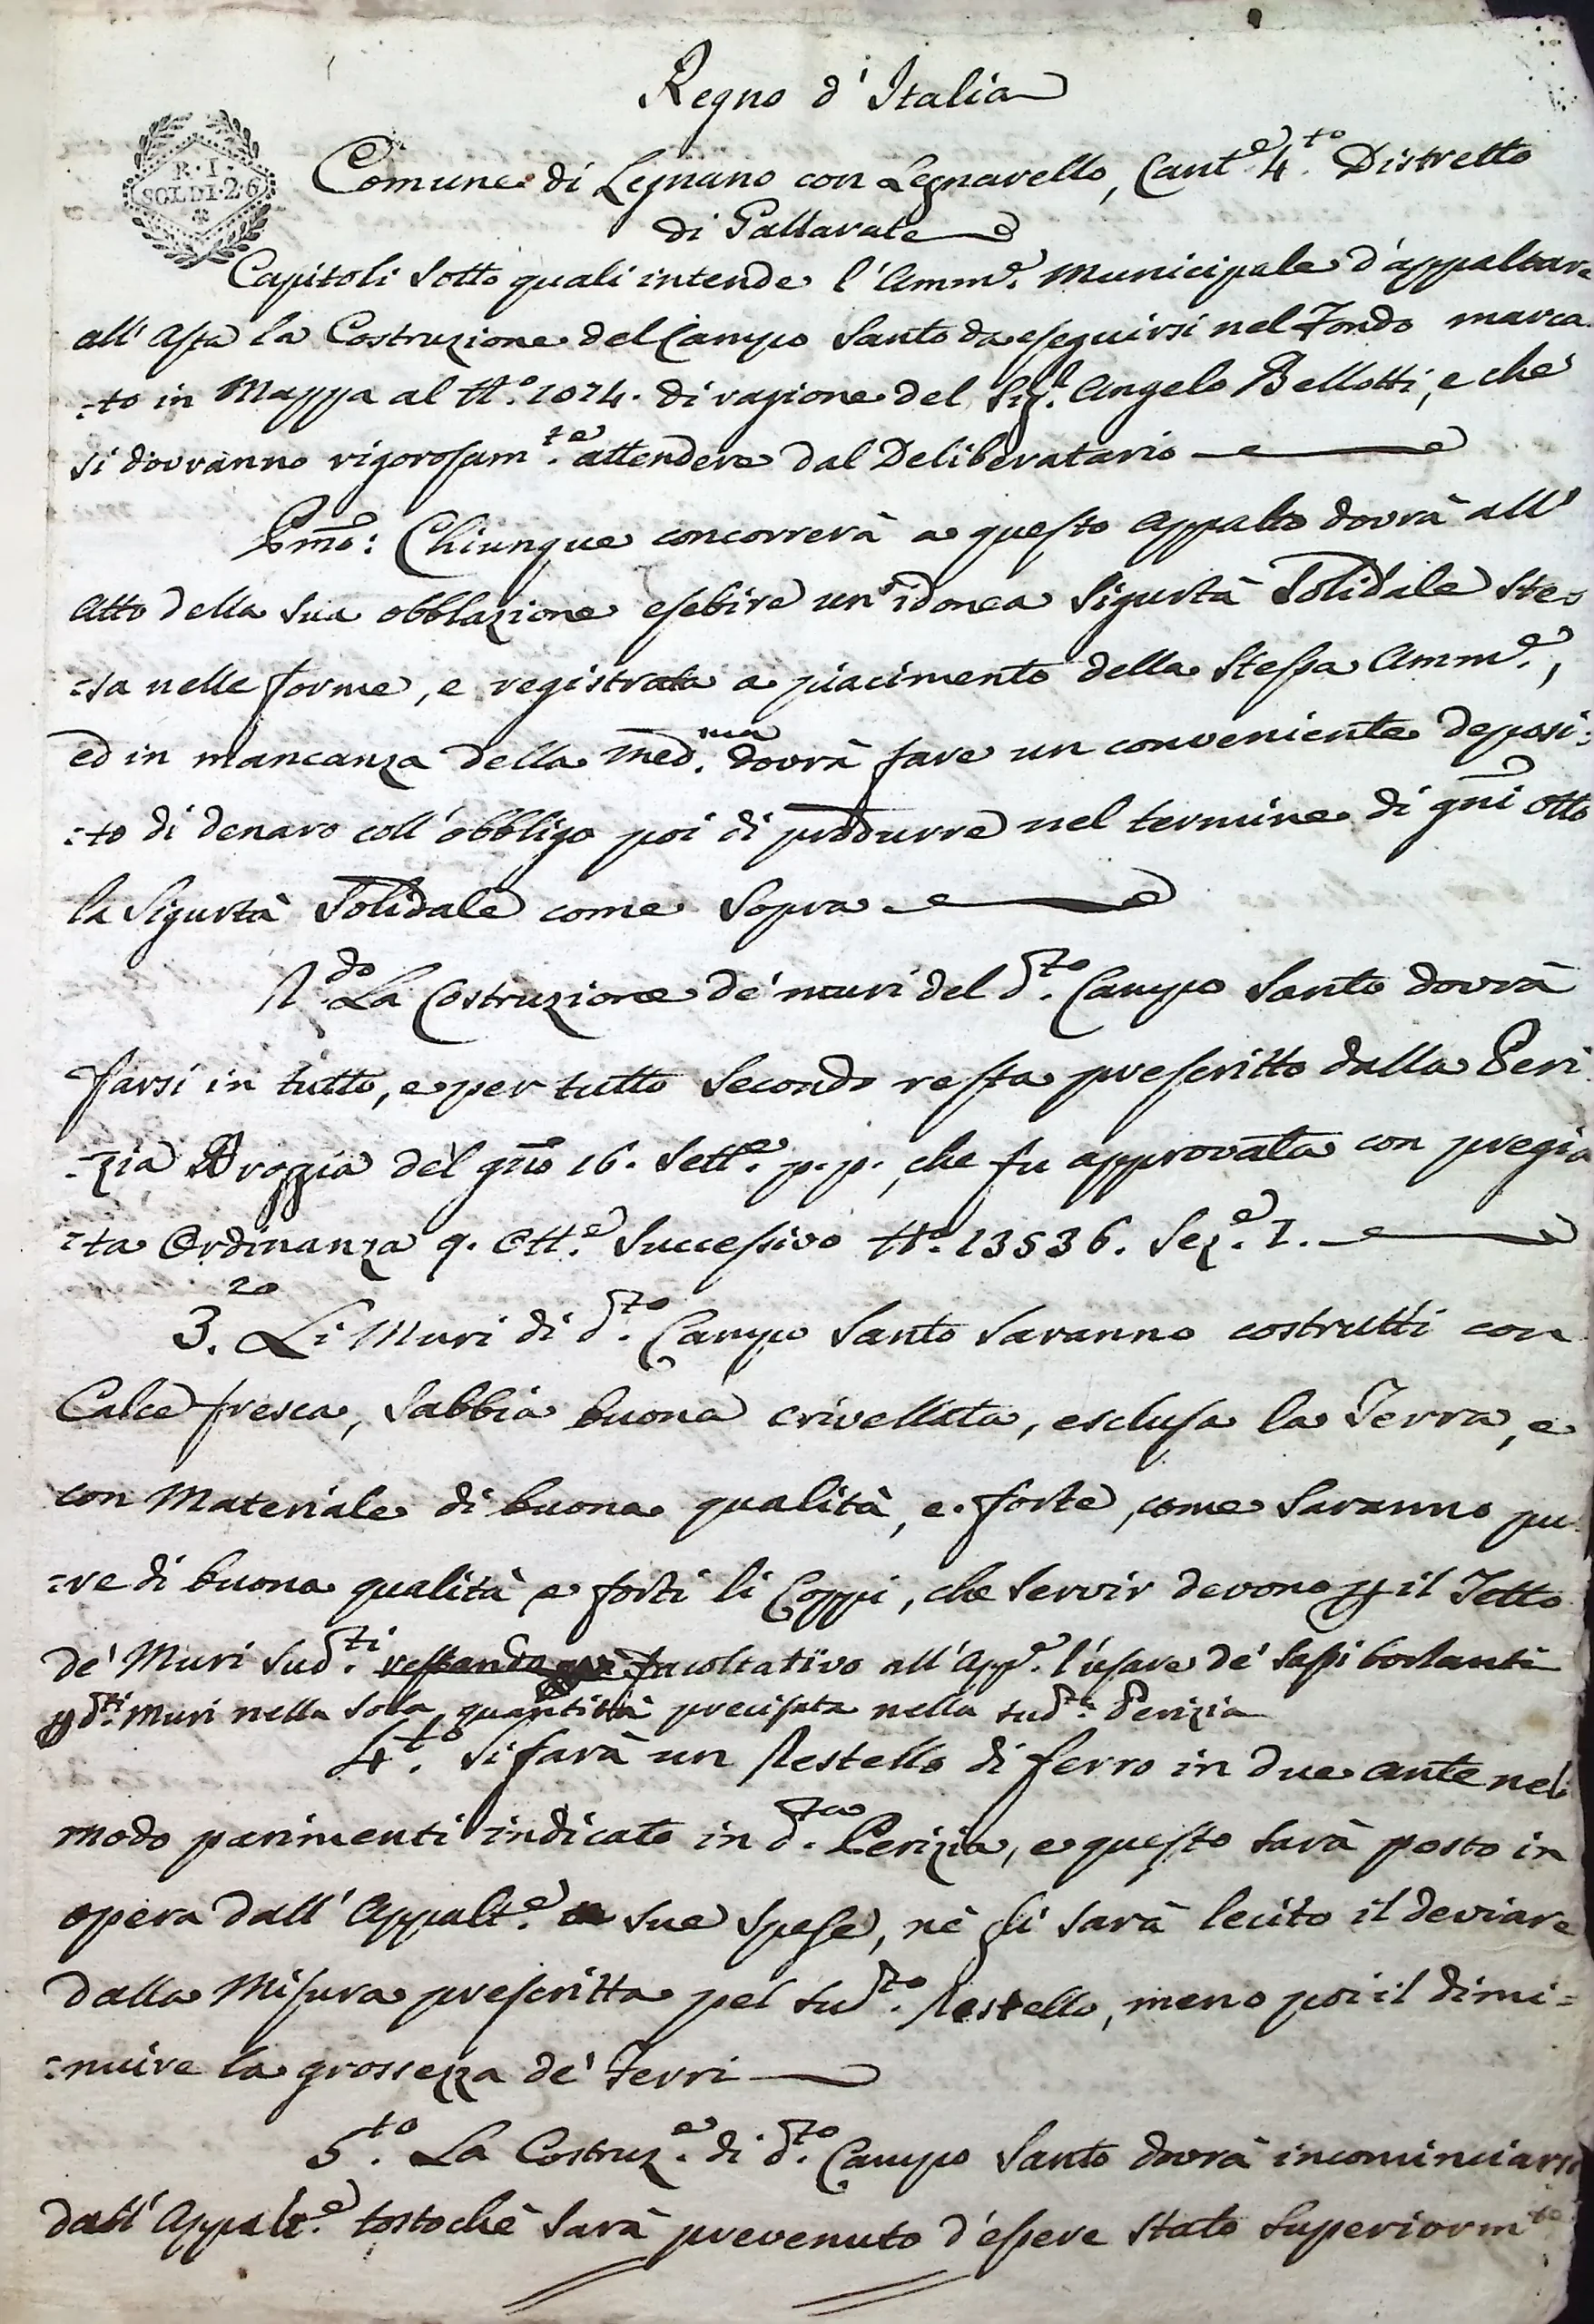 Regno d'Italia
R. I.
SOLDI. 2. 6
Comune di Legnano con Legnarello, Cant.e 4.to Distretto
di Gallarate
Capitoli sotto quali intende l'Amm.e Municipale d'appaltare
all'Asta la Costruzione del Campo Santo da eseguirsi nel Fondo marca
:to in Mappa al N.o 1024. di ragione del Sig.r Angelo Bellotti, e che
si dovranno rigorosam.te attendere dal Deliberatario
Pmo: Chiunque concorrerà a questo Appalto dovrà all'
Atto della sua obblazione esebire un'idonea Sigurtà Solidale stes
:sa nelle forme, e registrata a piacimento della stessa Amm.e,
ed in mancanza della med.ma dovrà fare un conveniente deposi:
:to di denaro coll'obbligo poi di produrre nel termine di gni otto
la Sigurtà Solidale come sopra
2.do La Costruzione de' muri del d.to Campo Santo dovrà
farsi in tutto, e per tutto secondo resta prescritto dalla Peri
:zia Broggia del gno 16. Sett.e p.p., che fu approvata con pregia
:ta Ordinanza 9. Ott.e successivo N.o 13536. Sez.e I.
3.zo Li Muri di d.to Campo Santo saranno costrutti con
Calce fresca, sabbia buona crivellata, esclusa la Terra, e
con Materiale di buona qualità, e forte, come saranno pu
:re di buona qualità e forti li Coppi, che servir devono p il Tetto
de' Muri sud.ti restando facoltativo all'App.e l'usare de' sassi borlanti
p d.ti Muri nella sola quantità precisata nella sud.ta Perizia
4.to Si farà un Restello di ferro in due ante nel
modo parimenti indicato in d.ta Perizia, e questo sarà posto in
opera dall'Appalt.e a sue spese, nè li sarà lecito il deviare
dalla Misura prescritta pel sud.to Restello, meno poi il dimi:
:nuire la grossezza de' Ferri
5.to La Costruz.e di d.to Campo Santo dovrà incominciarsi
dall'Appalt.e tostochè sarà prevenuto d'essere stato superiorm.te